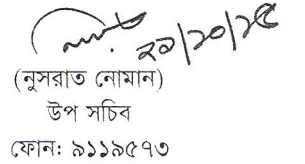 ২১/১০/১৫
(নুসরাত নোমান)
উপ সচিব
ফোন: ৯১১৯৫৭৩